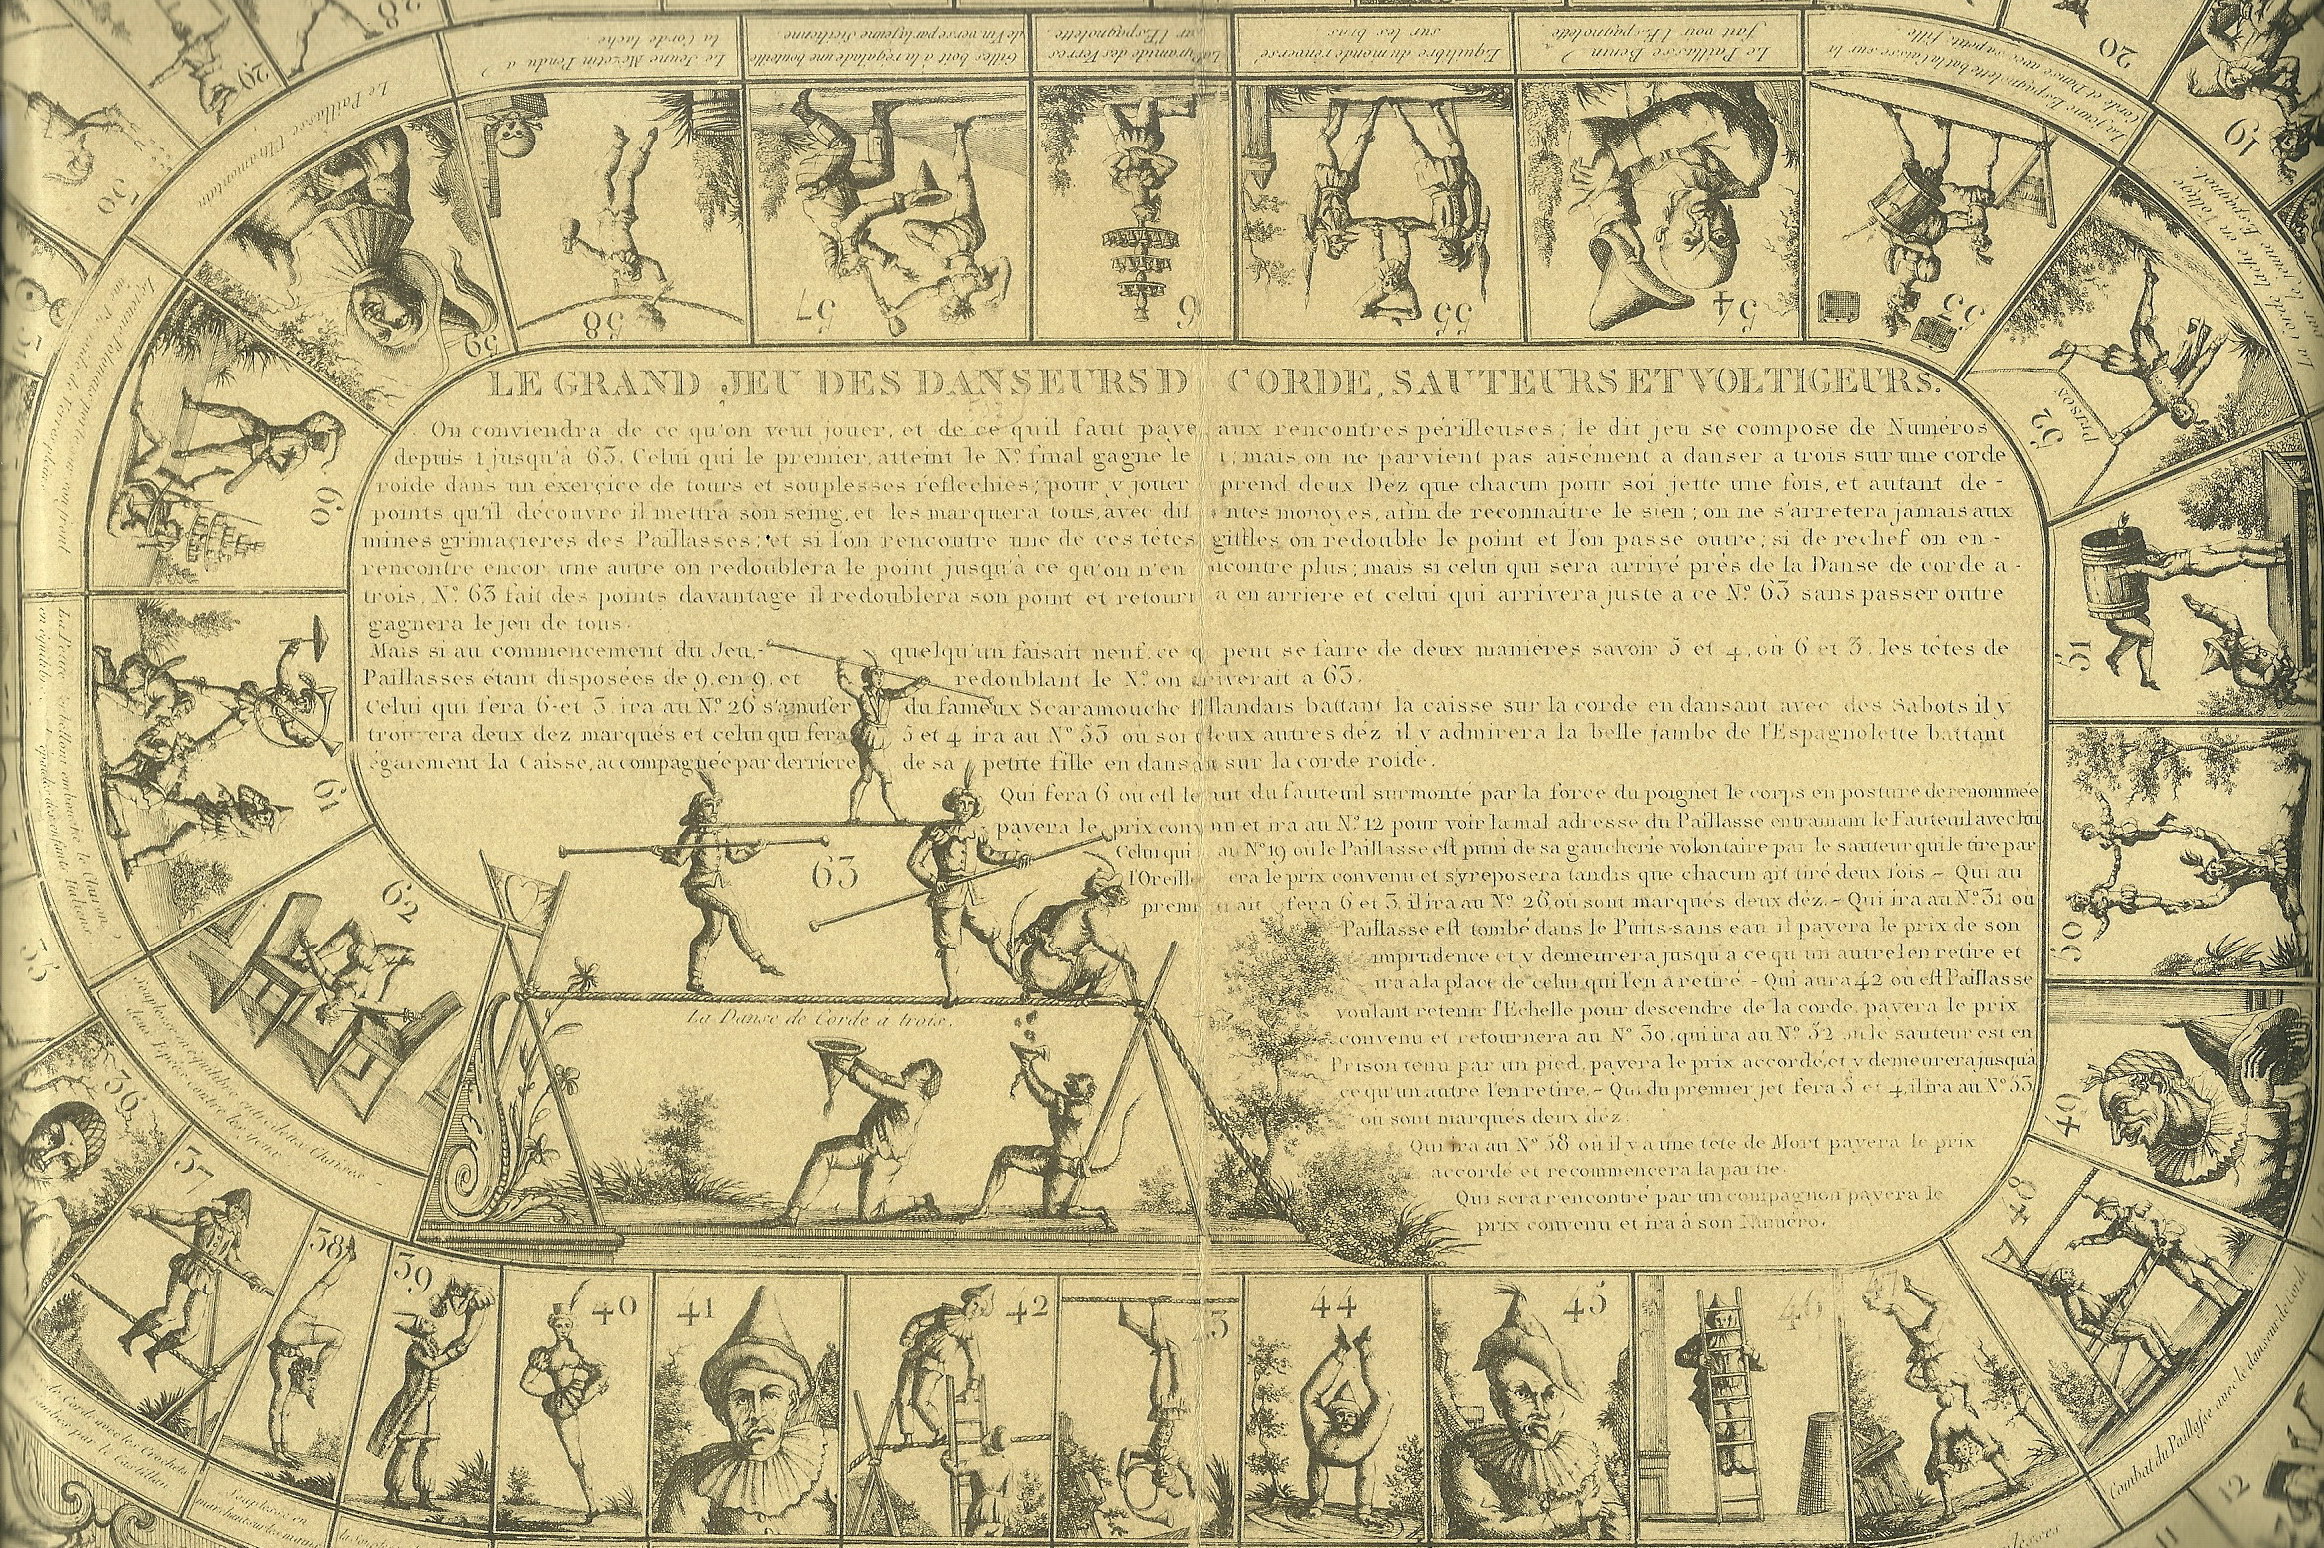 LE GRAND JEU DES DANSEURS D CORDE, SAUTEURS ET VOLTIGEURS.
On conviendra de ce qu'on veut jouer, et de ce quil faut paye aux rencontres périlleuses; le dit jeu se compose de Numéros
depuis 1 jusqu'à 63. Celui qui le premier, atteint le N.º final gagne le mais on ne parvient pas aisément a danser a trois sur une corde
roide dans un exerçice de tours et souplesses réflechies; pour y jouer prend deux Dez que chacun pour soi jette une fois, et autant de -
points qu'il découvre il mettra son seing, et les marquera tous, avec dif ntes monoyes, afin de reconnaitre le sien; on ne s'arretera jamais aux
mines grimacieres des Paillasses; et si l'on rencontre une de ces têtes gitilles on redouble le point et l'on passe outre; si de rechef on en -
rencontre encor une autre on redoublera le point jusqu'à ce qu'on n'en ncontre plus; mais si celui qui sera arrivé prés de la Danse de corde a -
trois, N.º 63 fait des points davantage il redoublera son point et retour a en arriere et celui qui arrivera juste a ce N.º 63 sans passer outre
gagnera le jeu de tous.
Mais si au commencement du Jeu, quelqu'un faisait neuf, ce q peut se faire de deux manières savoir 5 et 4, où 6 et 3, les têtes de
Paillasses étant disposées de 9, en 9, et redoublant le N.º on riverait a 63.
Celui qui fera 6 et 3 ira au N.º 26 s'amuser du fameux Scaramouche Hllandais battant la caisse sur la corde en dansant avec des Sabots il y
trouvera deux dez marqués et celui qui fera 5 et 4 ira au N.º 53 ou sont deux autres déz il y admirera la belle jambe de l'Espagnolette battant
également la Caisse, accompagnée par derriere de sa petite fille en dansant sur la corde roide.
Qui fera 6 ou est le aut du fauteuil surmonté par la force du poignet le corps en posture de renommée
payera le prix conv nu et ira au N.º 12 pour voir la mal adresse du Paillasse entrainant le Fauteuil avec lui
Celui qui au N.º 19 ou le Paillasse est puni de sa gaucherie volontaire par le sauteur qui le tire par
l'Oreille era le prix convenu et s'yreposera tandis que chacun ait tiré deux fois - Qui au
prem ait fera 6 et 3, il ira au N.º 26, où sont marqués deux déz. - Qui ira au N.º 31 où
Paillasse est tombé dans le Puits-sans eau il payera le prix de son
imprudence et y demeurera jusqu a ce qu un autre l'en retire et
ira a la place de celui qui l'en a retiré - Qui aura 42 ou est Paillasse
voulant retenir l'Echelle pour descendre de la corde, payera le prix
convenu et retournera au N.º 30, qui ira au N.º 52 ou le sauteur est en
Prison tenu par un pied, payera le prix accordé, et y demeurera jusqu'à
ce qu'un autre l'en retire. - Qui du premier jet fera 5 et 4, il ira au N.º 53
ou sont marqués deux déz.
Qui ira au N.º 58 ou il y a une tête de Mort payera le prix
accordé et recommencera la partie.
Qui sera rencontré par un compagnon payera le
prix convenu et ira à son Numéro.
La Danse de Corde a trois.
63
37
38
39
40
41
42
3
44
45
46
47
48
49
50
51
52
Prison
53
54
55
6
57
58
59
60
61
62
11
12
19
20
28
29
30
35
36
La jeune Espagnolette bat la caisse sur la
Corde et Danse avec sa petite fille.
Le Paillasse Benin ?
fait voir l'Espagnolette
Equilibre du monde renversé
sur les bras
La Pyramide des Verres
par l'Espagnolette.
Gilles boit à la régalade une bouteille
de Vin versé par la jeune Sicilienne.
Le Jeune Mezetin Pendu a
la Corde lache.
Le Paillasse Ultramontain
Souplesse en équilibre entre deux Chaises
deux Epées contre les yeux
Combat du Paillasse avec le danseur de Corde